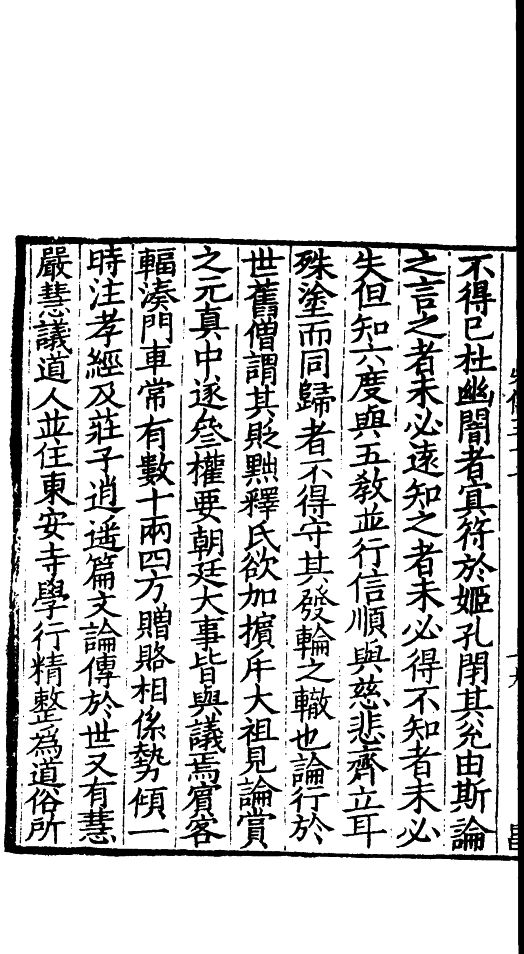 不得已杜幽闇者冥符於姬孔閉其兊由斯論
之言之者未必遠知之者未必得不知者未必
失但知六度與五敎並行信順與慈悲齊立耳
殊塗而同歸者不得守其發輪之轍也論行於
世舊僧謂其貶黜釋氏欲加擯斥太祖見論賞
之元真中遂參權要朝廷大事皆與議焉賓客
輻湊門車常有數十兩四方贈賂相係勢傾一
時注孝經及莊子逍遥篇文論傳於世又有慧
嚴慧議道人並住東安寺學行精整爲道俗所